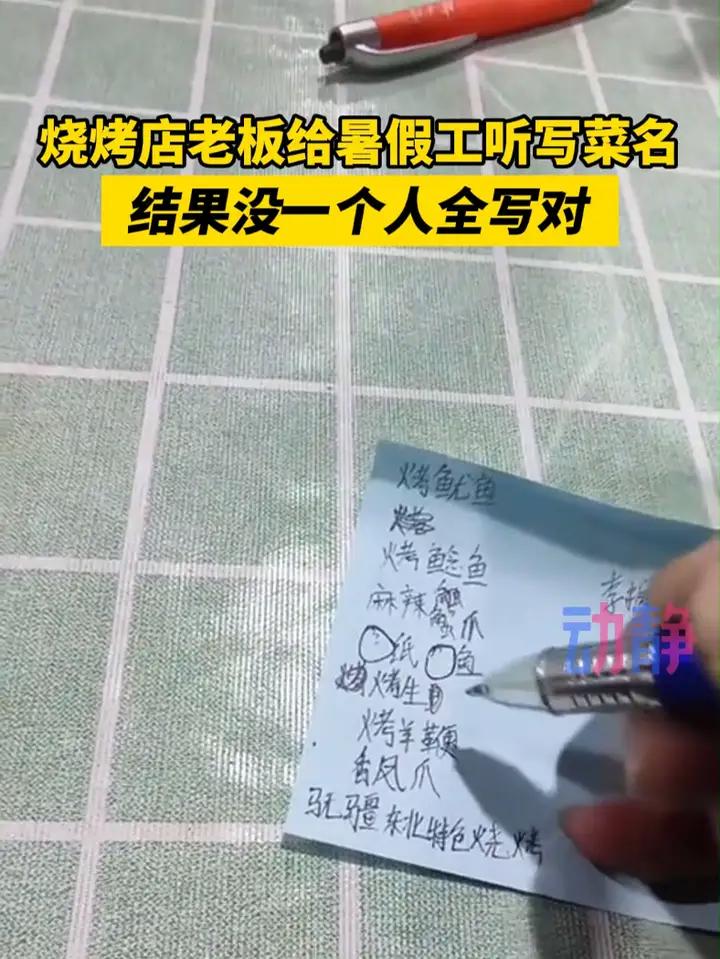 烧烤店老板给暑假工听写菜名
结果没一个人全写对
烤鱿鱼
烤鲶鱼
麻辣蟹
爪
纸 鱼
烤生
烤羊鞭
香凤爪
东北特色烧烤
李
动静